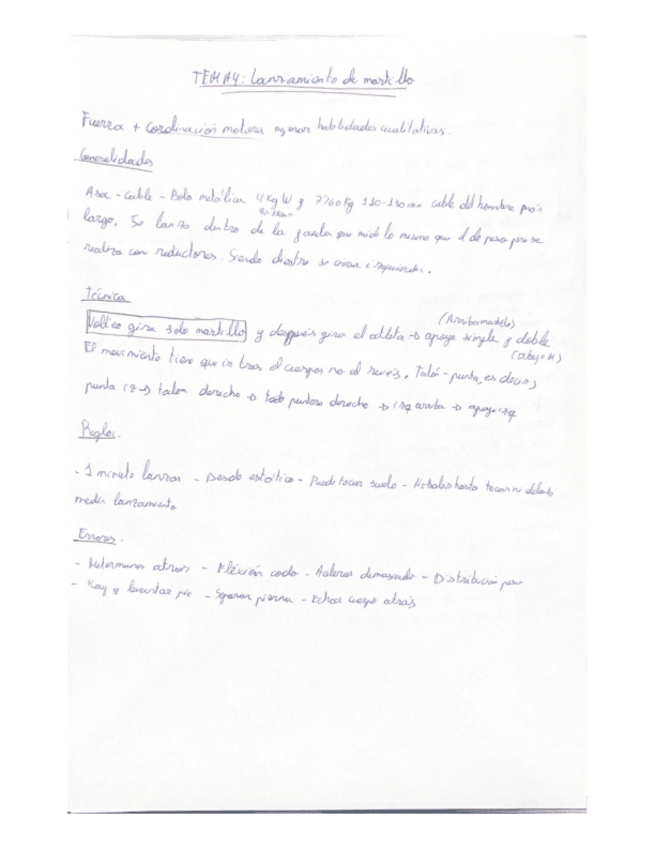 TEMA 4: Lanzamiento de martillo
Fuerza + Coordinación motora mejorar habilidades cualitativas.
Generalidades
Asa - Cable - Bola metálica 4 Kg W y 7'260 Kg 110-130 mm cable del hombre más
largo. Se lanza dentro de la jaula que mide lo mismo que el de peso pero se
realiza con reductores. Siendo diestro se
Técnica
(Arriba martillo)
Volteo gira solo martillo y después gira el atleta → apoyo simple y doble.
(abajo M)
El movimiento tiene que ir tras el cuerpo no al revés. Talón - punta, es decir,
punta izq → talón derecho → todo puntera derecho → izq arriba → apoyo izq
Reglas.
- 1 minuto lanzar - Desde estático - Puede tocar suelo - No
medir lanzamiento
Errores.
- atrás - Flexión codo - Acelerar demasiado - Distribución peso
- Hay q levantar pie - Separar pierna - Echar cuerpo atrás